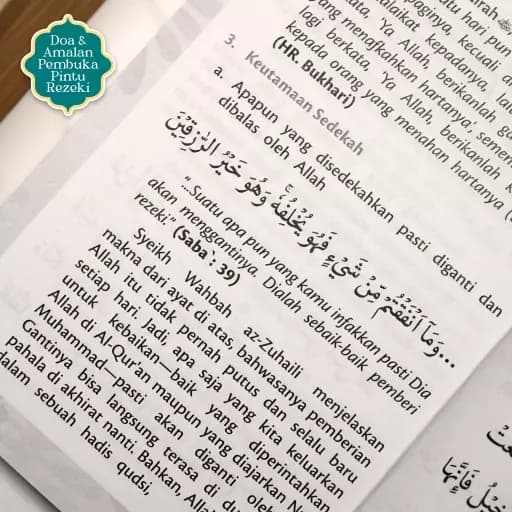 Doa &
Amalan
Pembuka
Pintu
Rezeki
hartanya, semen
lagi berkata, 'Ya Allah, berikanlah
kepada orang yang menahan hartanya
(HR. Bukhari)
3. Keutamaan Sedekah
a. Apapun yang disedekahkan pasti diganti dan
dibalas oleh Allah
...وَمَا أَنْفَقْتُمْ مِّنْ شَيْءٍ فَهُوَ يُخْلِفُهُۚ وَهُوَ خَيْرُ الرّٰزِقِيْنَ
"...Suatu apa pun yang kamu infakkan pasti Dia
akan menggantinya. Dialah sebaik-baik pemberi
rezeki." (Saba`: 39)
Syeikh Wahbah az-Zuhaili menjelaskan
makna dari ayat di atas, bahwasanya pemberian
Allah itu tidak pernah putus dan selalu baru
setiap hari. Jadi, apa saja yang kita keluarkan
untuk kebaikan—baik yang diperintahkan
Allah di Al-Qur'an maupun yang diajarkan
Muhammad—pasti akan diganti
Gantinya bisa langsung terasa di
pahala di akhirat nanti. Bahkan,
dalam sebuah hadis qudsi,